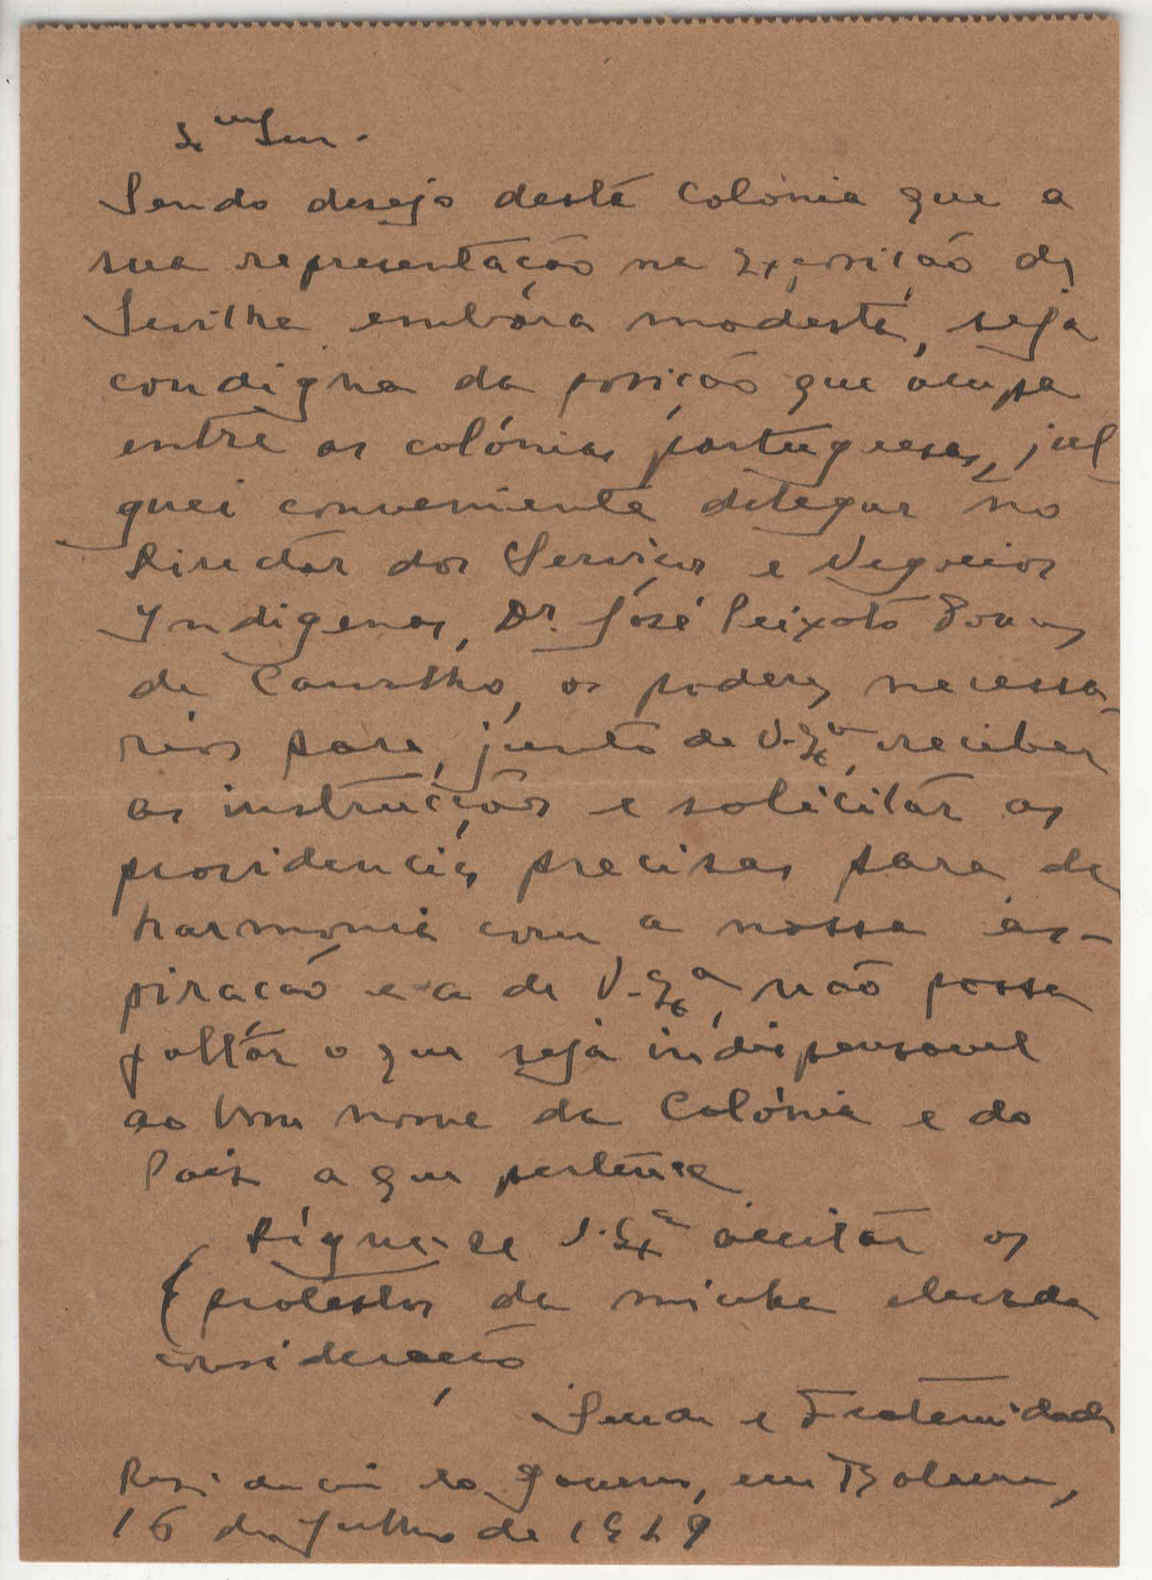 Ex.mo Snr.
Sendo desejo desta Colónia que a
sua representação na Exposição de
Sevilha embóra modesta, seja
condigna da posição que ocupa
entre as colónias portuguesas, jul
guei conveniente delegar no
Director dos Serviços e Negocios
Indigenas, Dr. José Peixoto Ponces
de Carvalho, os poderes necessa-
rios para, junto de V. Ex.a, receber
as instruções e solicitar as
providencias precisas para de
harmonia com a nossa as-
piração e a de V. Ex.a, não possa
faltar o que seja indispensavel
ao bom nome da Colónia e do
Pais a que pertence
Digne-se V. Ex.a aceitar os
protestos da minha elevada
consideração
Saude e Fraternidade
Residencia do Governo, em Bolama,
16 de Julho de 1929